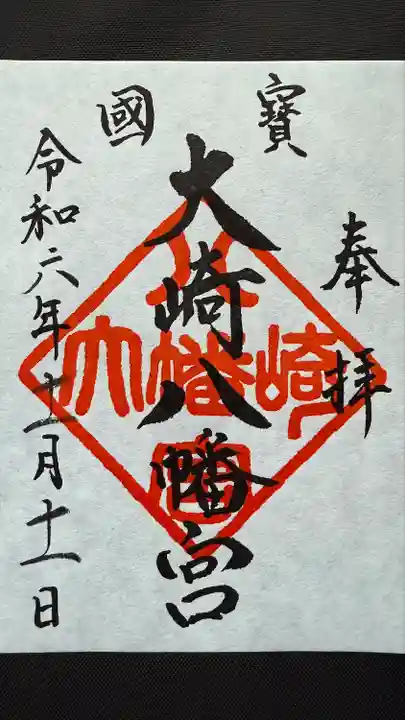 寶國
奉拝
大崎八幡宮
令和六年十二月十一日
八
大幡崎
宮